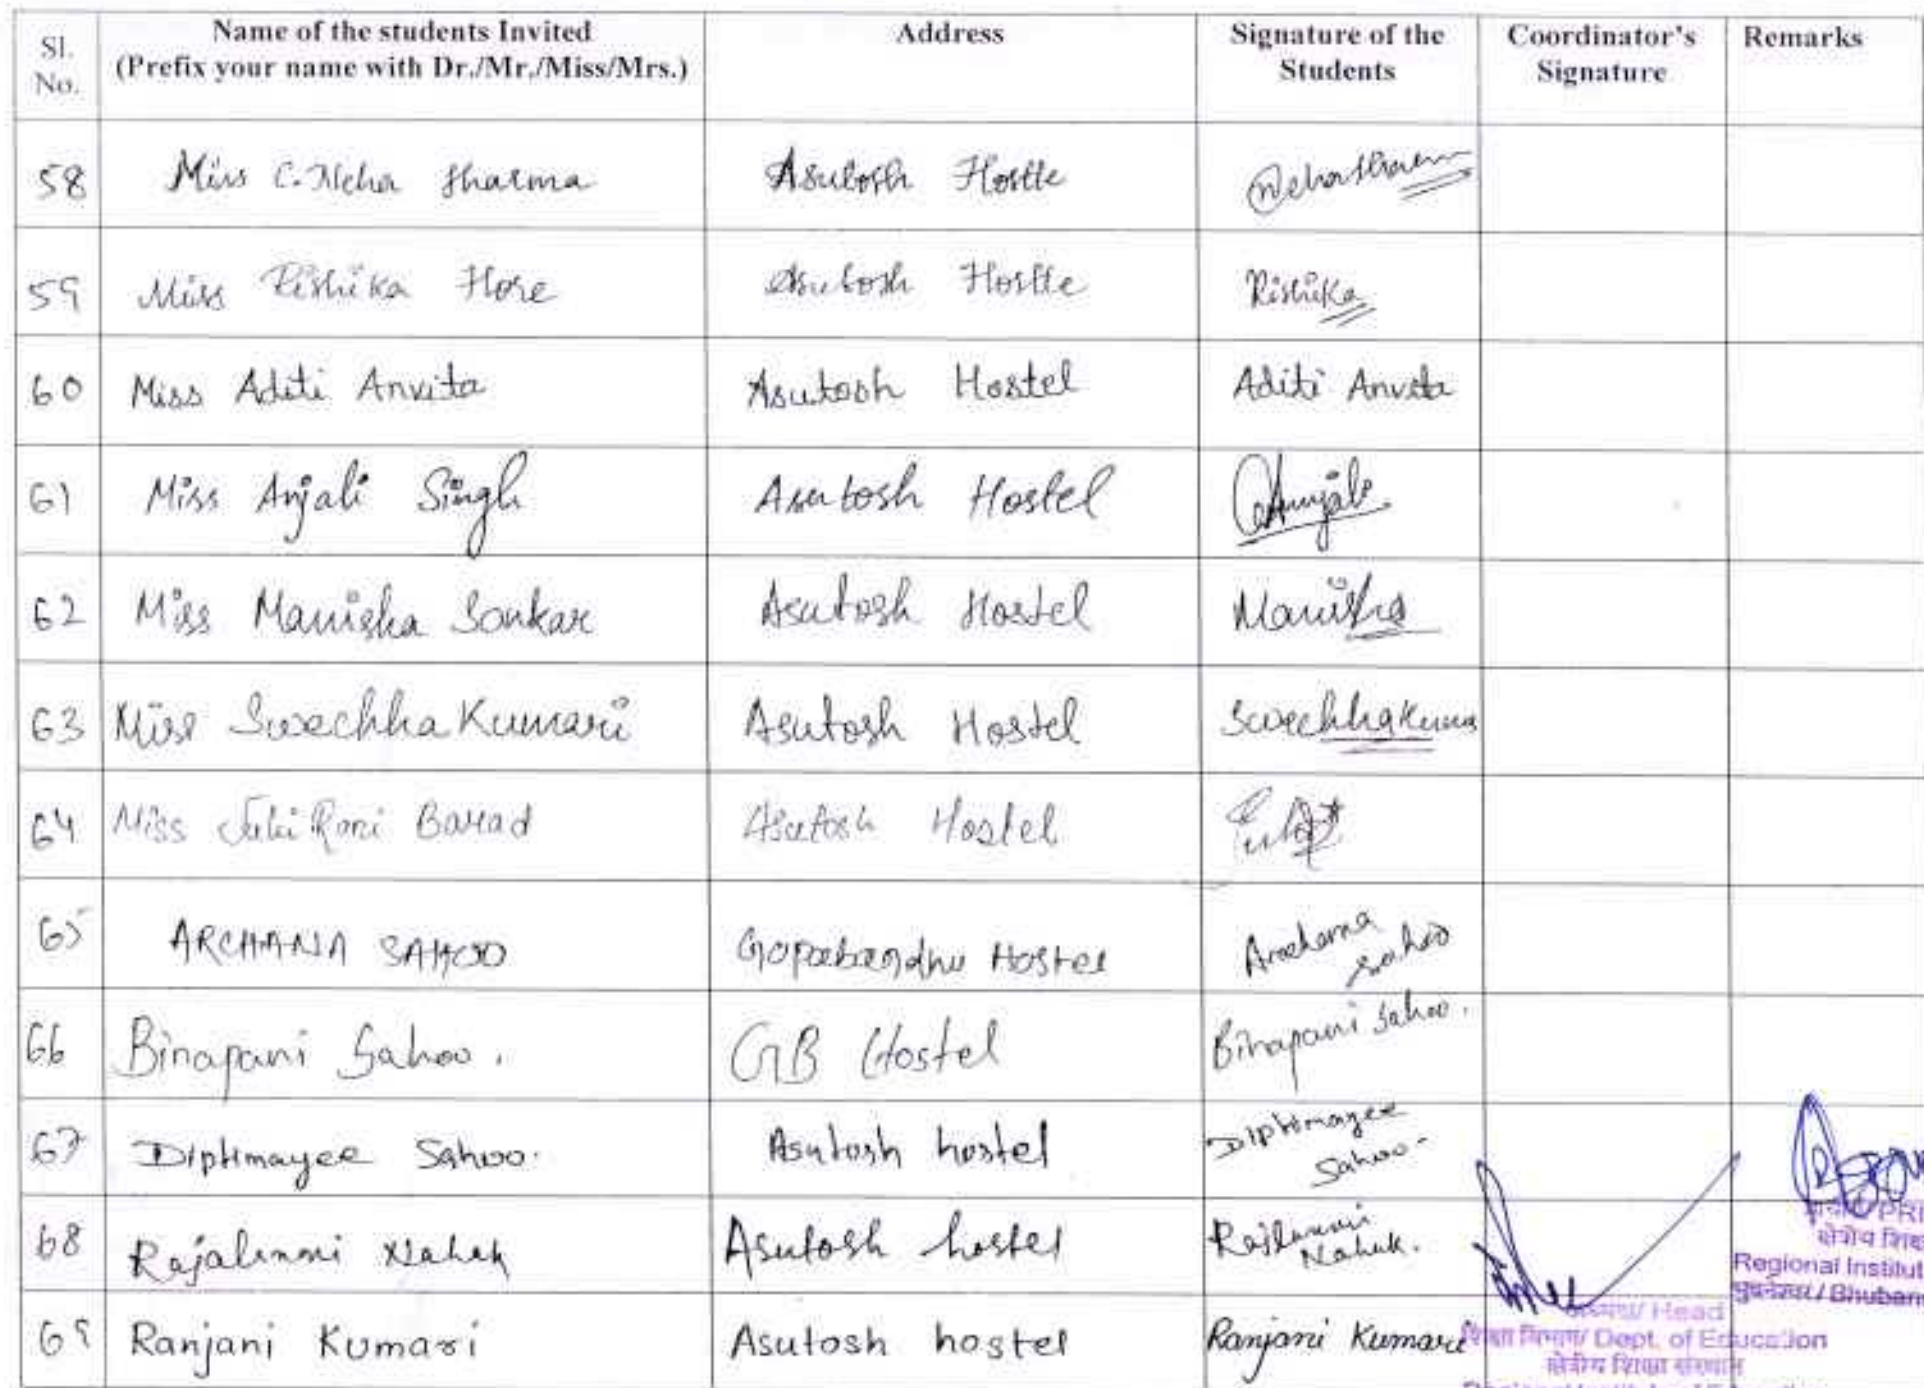 Sl. No. Name of the students Invited (Prefix your name with Dr./Mr./Miss/Mrs.) Address Signature of the Students Coordinator's Signature Remarks
58 Miss C. Neha Sharma Asutosh Hostle Neha Sharma
59 Miss Rishika Hore Asutosh Hostle Rishika
60 Miss Aditi Anvita Asutosh Hostel Aditi Anvita
61 Miss Anjali Singh Asutosh Hostel Anjali
62 Miss Manisha Sonkar Asutosh Hostel Manisha
63 Miss Swechha Kumari Asutosh Hostel Swechha Kuma
64 Miss Juhi Rani Barad Asutosh Hostel
65 ARCHANA SAHOO Gopabandhu Hostel Archana Sahoo
66 Binapani Sahoo. GB Hostel Binapani Sahoo.
67 Diptimayee Sahoo. Asutosh hostel Diptimayee Sahoo.
68 Rajalaxmi Nahak Asutosh hostel Rajlaxmi Nahak.
69 Ranjani Kumari Asutosh hostel Ranjani Kumari
PRI
क्षेत्रीय शिक्षा
Regional Institut
भुवनेश्वर / Bhuban
अध्यक्ष/ Head
शिक्षा विभाग/ Dept. of Education
क्षेत्रीय शिक्षा संस्थान